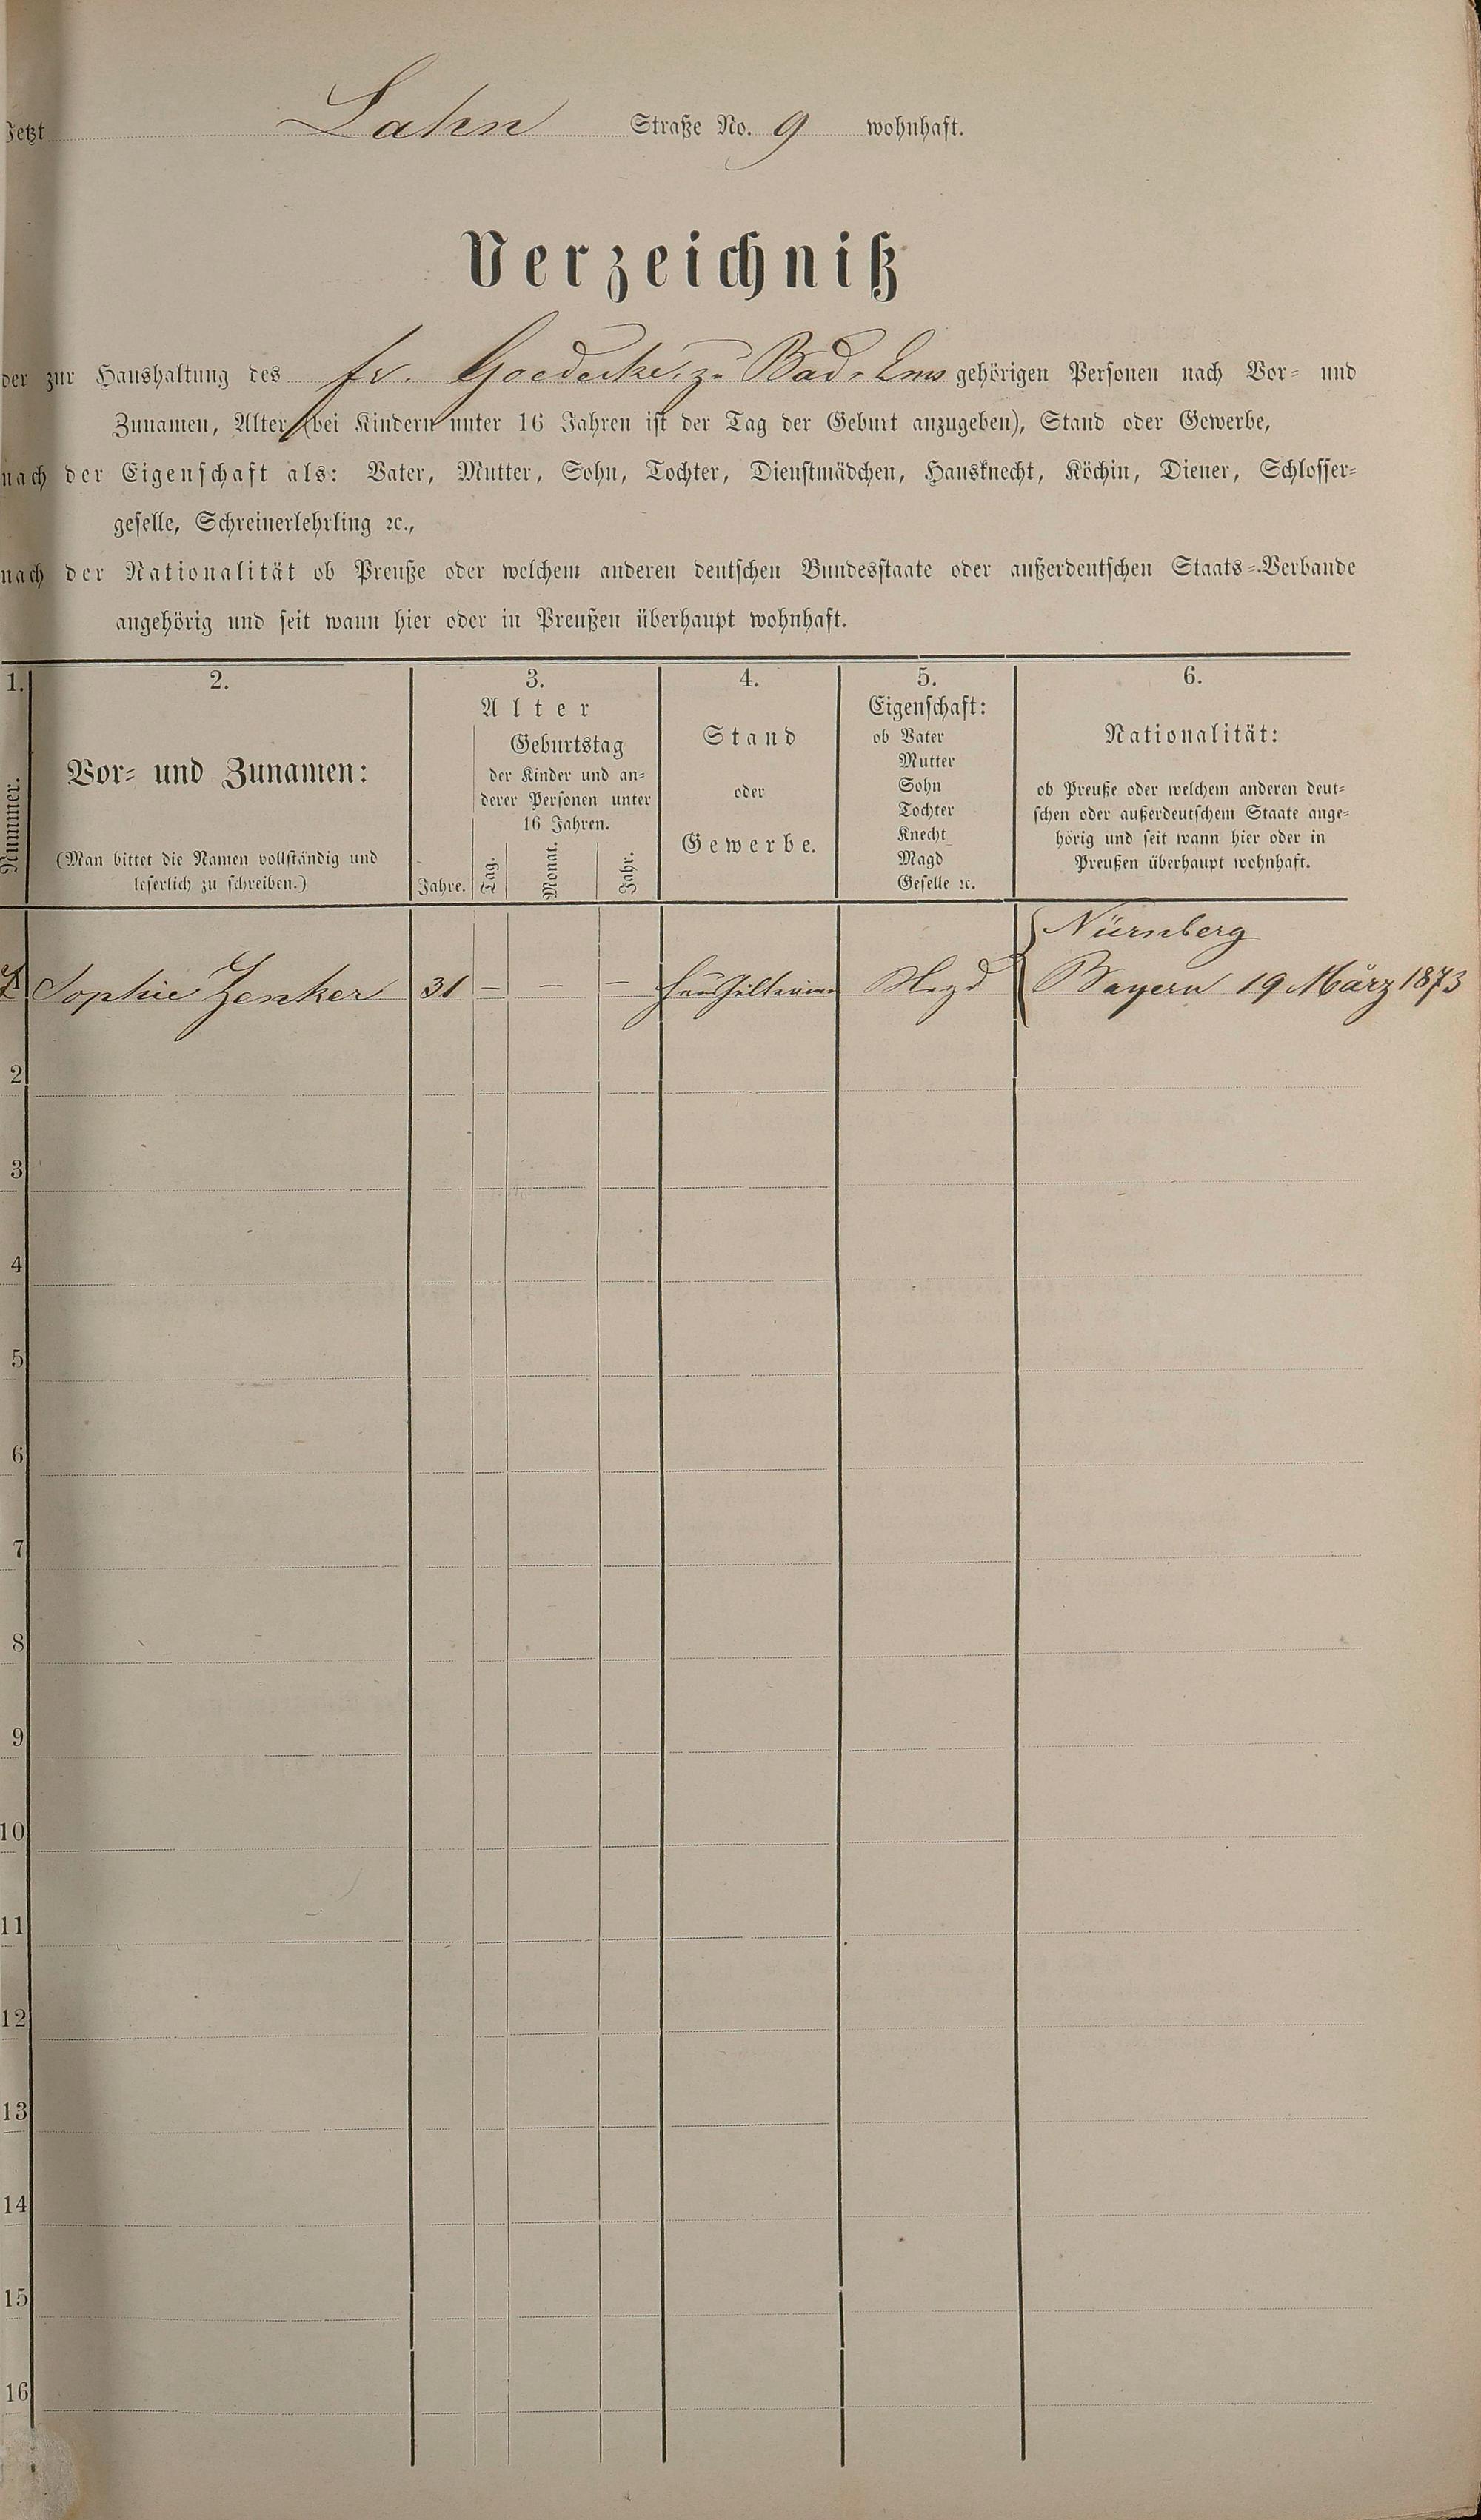 Jetzt Lahn Straße No. 9 wohnhaft.
Verzeichniß
der zur Haushaltung des fr. Goedecke, zu Bad-Ems gehörigen Personen nach Vor- und
Zunamen, Alter (bei Kindern unter 16 Jahren ist der Tag der Geburt anzugeben), Stand oder Gewerbe,
nach der Eigenschaft als: Vater, Mutter, Sohn, Tochter, Dienstmädchen, Hausknecht, Köchin, Diener, Schlosser-
geselle, Schreinerlehrling ꝛc.,
nach der Nationalität ob Preuße oder welchem anderen deutschen Bundesstaate oder außerdeutschen Staats-Verbande
angehörig und seit wann hier oder in Preußen überhaupt wohnhaft.
1.
Nummer.
2.
Vor- und Zunamen:
(Man bittet die Namen vollständig und
leserlich zu schreiben.)
3.
Alter
Geburtstag
der Kinder und an-
derer Personen unter
16 Jahren.
Jahre. Tag. Monat. Jahr.
4.
Stand
oder
Gewerbe.
5.
Eigenschaft:
ob Vater
Mutter
Sohn
Tochter
Knecht
Magd
Geselle ꝛc.
6.
Nationalität:
ob Preuße oder welchem anderen deut-
schen oder außerdeutschem Staate ange-
hörig und seit wann hier oder in
Preußen überhaupt wohnhaft.
Nürnberg
1 Sophie Zenker 31 – – – Haushälterinn Magd Bayern 19 März 1873
2
3
4
5
6
7
8
9
10
11
12
13
14
15
16